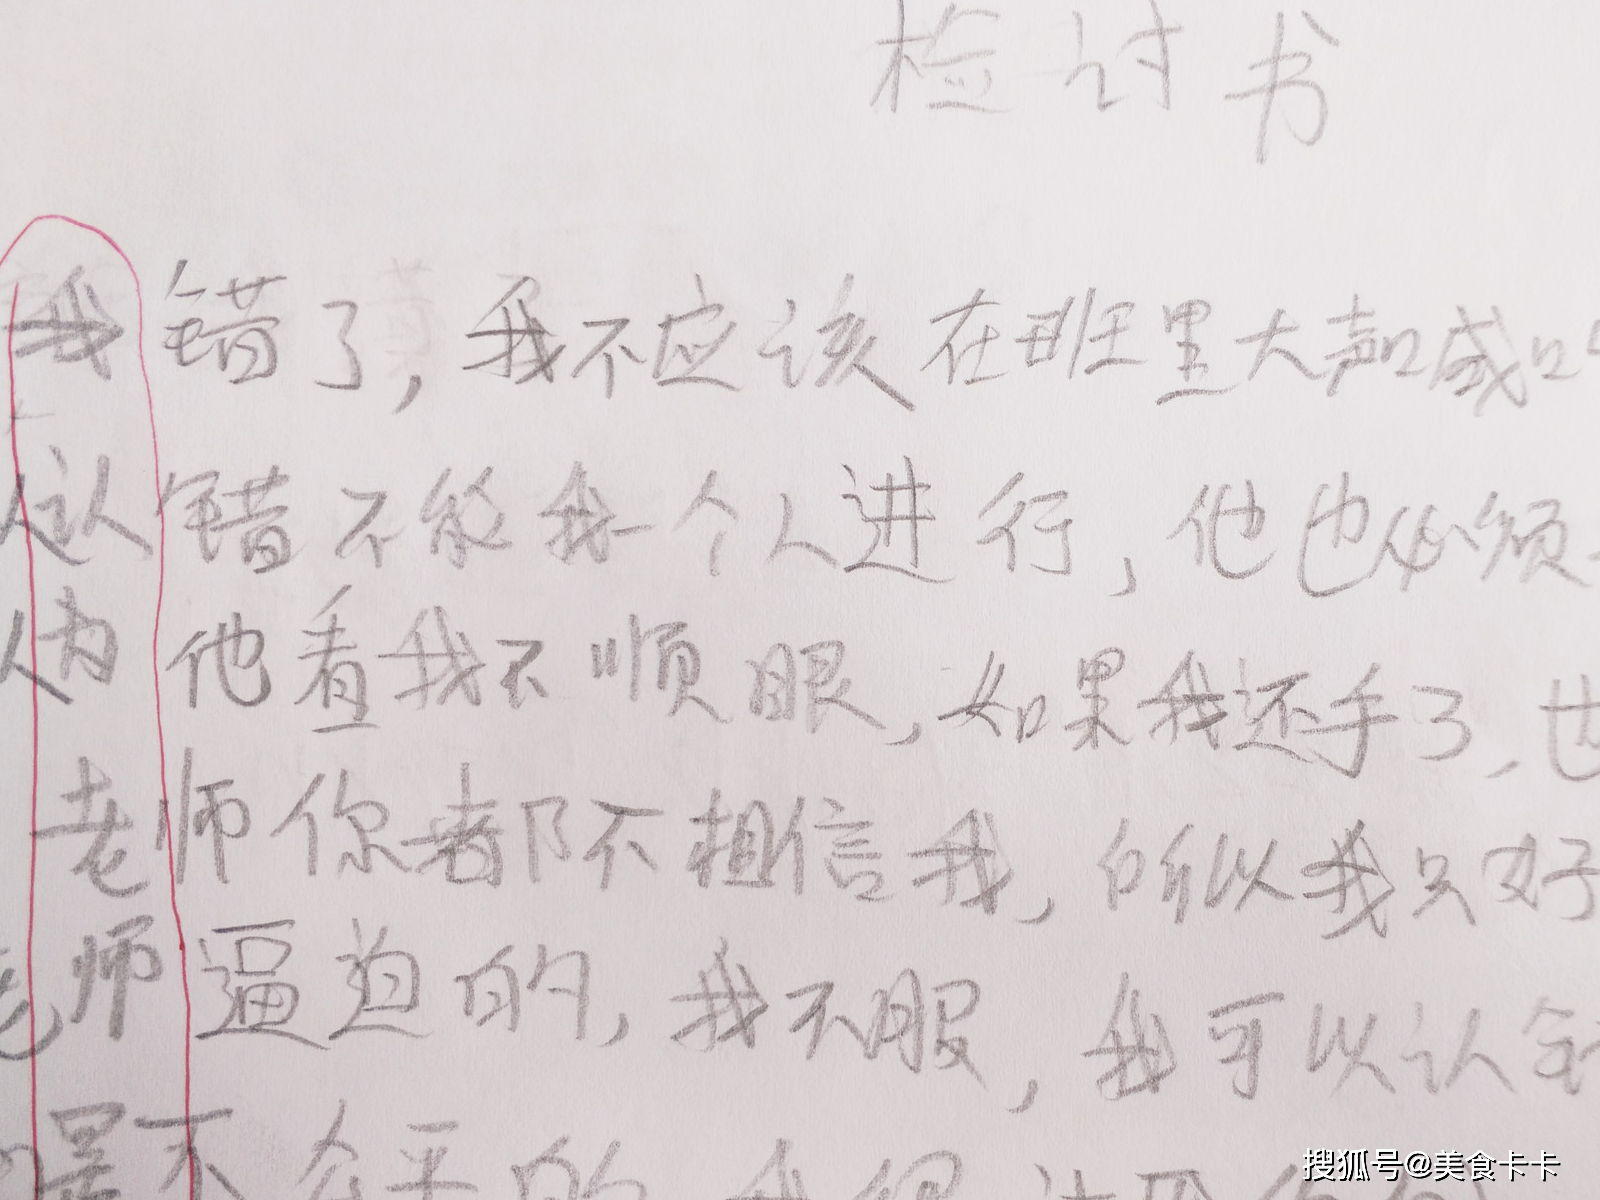 检讨书
我错了，我不应该在班里大声喊
认错不能我一个人进行，他也必须
为他看我不顺眼，如果我还手了，也
老师你都不相信我，所以我只好
老师逼迫的，我不服，我可以认错
是不公平的
搜狐号@美食卡卡